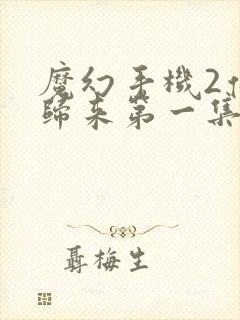 魔幻手機2
歸來第一集
聶梅生